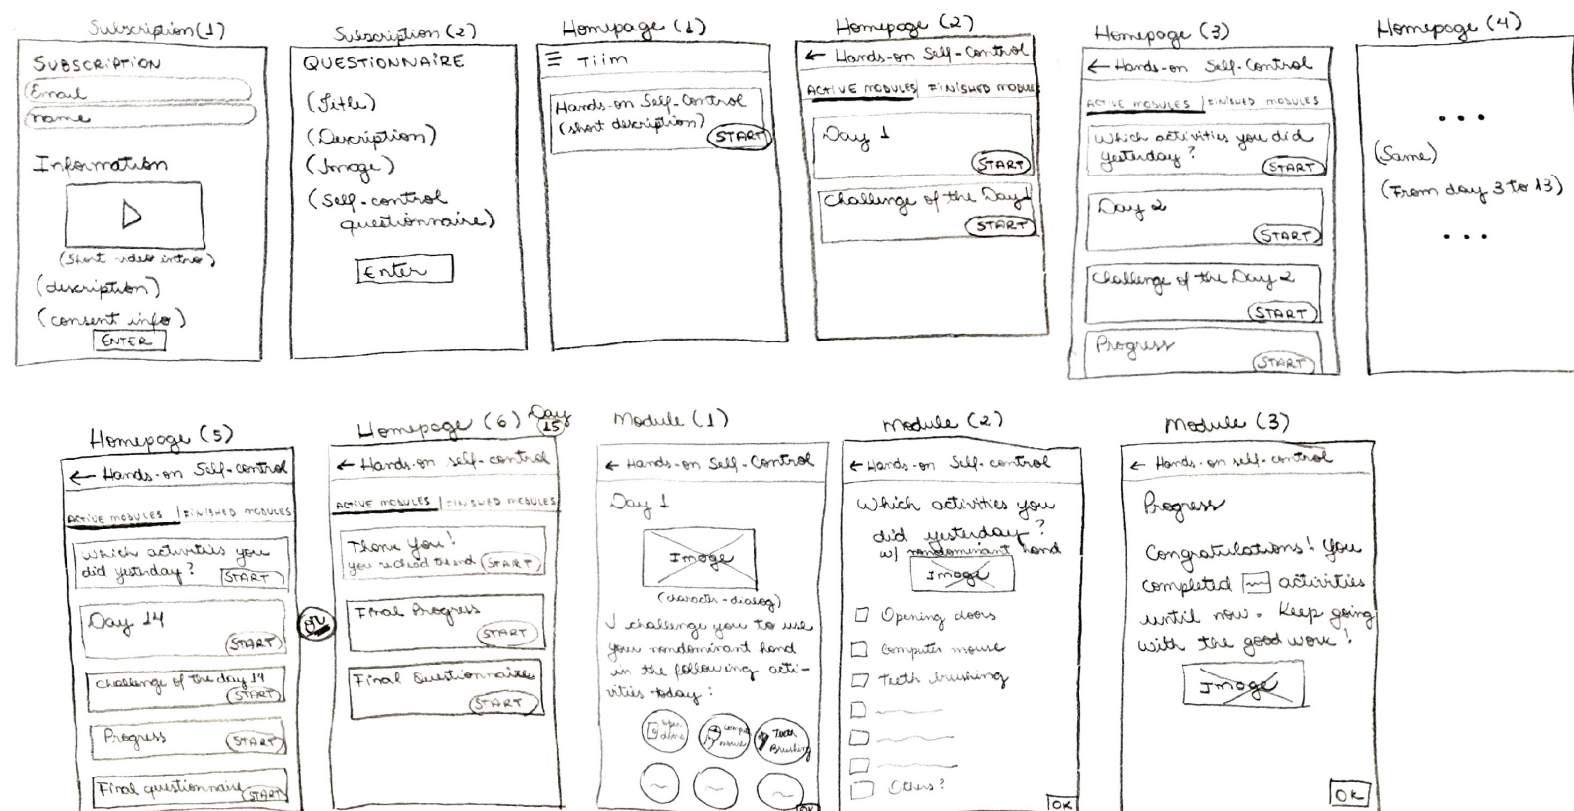 Subscription (1)
SUBSCRIPTION
Email
name
Information
(Short video intro)
(description)
(consent info)
ENTER
Subscription (2)
QUESTIONNAIRE
(Title)
(Description)
(Image)
(Self-control
questionnaire)
Enter
Homepage (1)
Tiim
Hands-on Self-Control
(short description)
START
Homepage (2)
← Hands-on Self-Control
ACTIVE MODULES | FINISHED MODULES
Day 1
START
Challenge of the Day 1
START
Homepage (3)
← Hands-on Self-Control
ACTIVE MODULES | FINISHED MODULES
Which activities you did
yesterday?
START
Day 2
START
Challenge of the Day 2
START
Progress
START
Homepage (4)
...
(Same)
(From day 3 to 13)
...
Homepage (5)
← Hands-on Self-control
ACTIVE MODULES | FINISHED MODULES
Which activities you
did yesterday? START
Day 14
START
Challenge of the day 14
START
Progress
START
Final questionnaire START
OR
Homepage (6) Day 15
← Hands-on self-control
ACTIVE MODULES | FINISHED MODULES
Thank You!
you reached the end START
Final Progress
START
Final Questionnaires
START
Module (1)
← Hands-on Self-Control
Day 1
Image
(character-dialog)
I challenge you to use
your nondominant hand
in the following acti-
vities today:
Open doors
Computer mouse
Teeth Brushing
OK
Module (2)
← Hands-on Self-control
Which activities you
did yesterday?
w/ nondominant hand
Image
Opening doors
Computer mouse
Teeth brushing
Others?
OK
Module (3)
← Hands-on self-control
Progress
Congratulations! You
completed activities
until now. Keep going
with the good work!
Image
OK